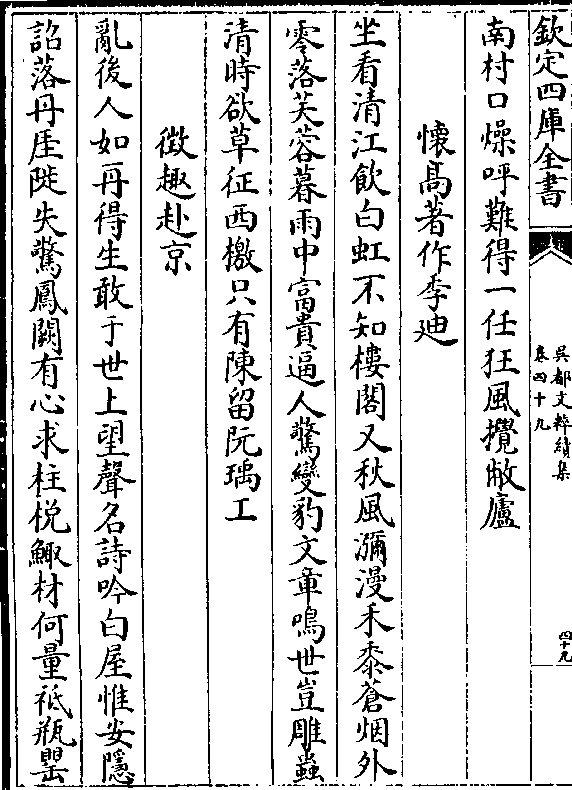 欽定四庫全書
吳都文粹續集
卷四十九
四十九
南村口燥呼難得一任狂風攪敝廬
懷高著作季迪
坐看清江飲白虹不知樓閣又秋風瀰漫禾黍蒼烟外
零落芙蓉暮雨中富貴逼人驚變豹文章鳴世豈雕蟲
清時欲草征西檄只有陳留阮瑀工
徴趣赴京
亂後人如再得生敢于世上望聲名詩吟白屋惟安隱
詔落丹厓陡失驚鳳闕有心求柱梲鯫材何量祗瓶罌